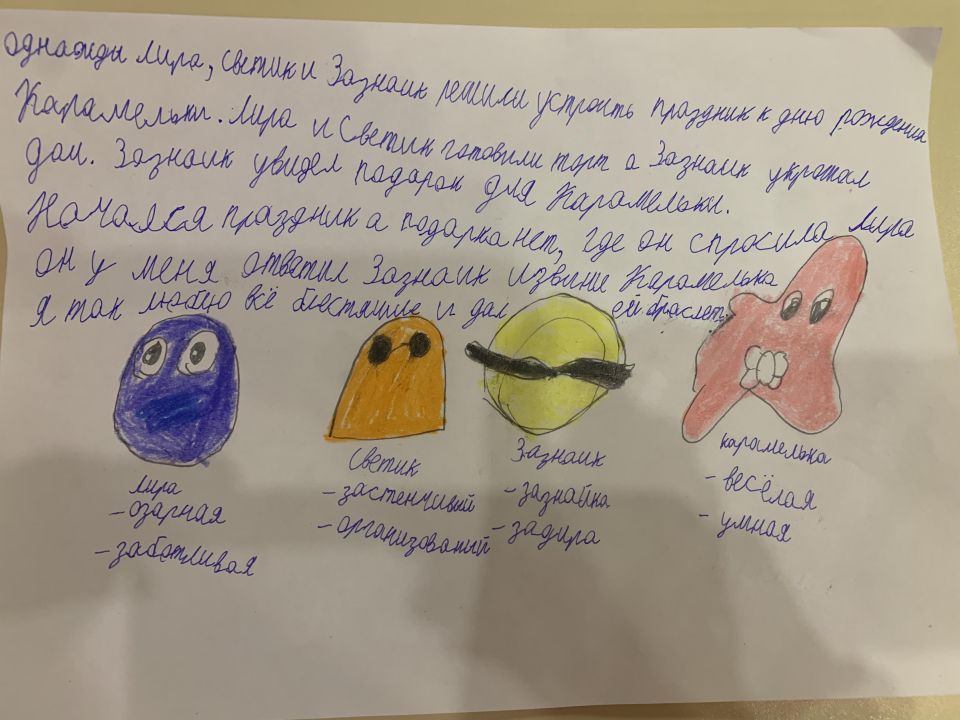 однажды Лира, светик и Зазнаик решили устроить праздник к дню рождения
Карамельки. Лира и Светик готовили торт а Зазнаик украшал
дом. Зазнаик увидел подарок для Карамельки.
Начался праздник а подарка нет, где он спросила Лира
он у меня ответил Зазнаик извини Карамелька
я так люблю всё блестящие и дал ей браслет.
Лира
- озарная
- заботливая
Светик
- застенчивый
- организованый
Зазнаик
- зазнайка
- задира
карамелька
- весёлая
- умная